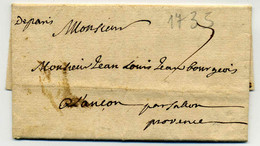 De paris
1735
Monsieur
Monsieur Jean Louis Jean bourgeois
a Lançon par Sallon
provence